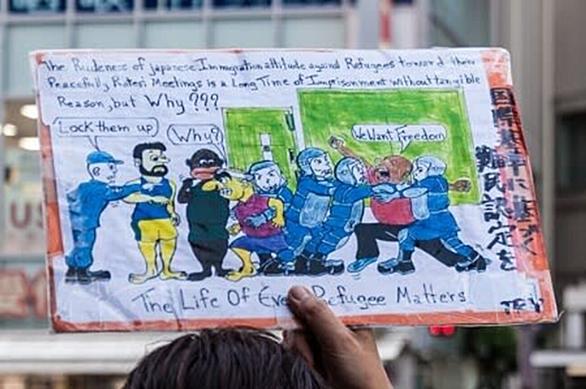 The Rudeness of japanese Immigration attitude against Refugees toward their
Peacefully, Protest Meetings is a Long Time of Imprisonment without tangible
Reason, but Why ???
Lock them up
Why?
We Want Freedom
国際基準に基づく
難民認定を
The Life Of Eve Refugee Matters
US